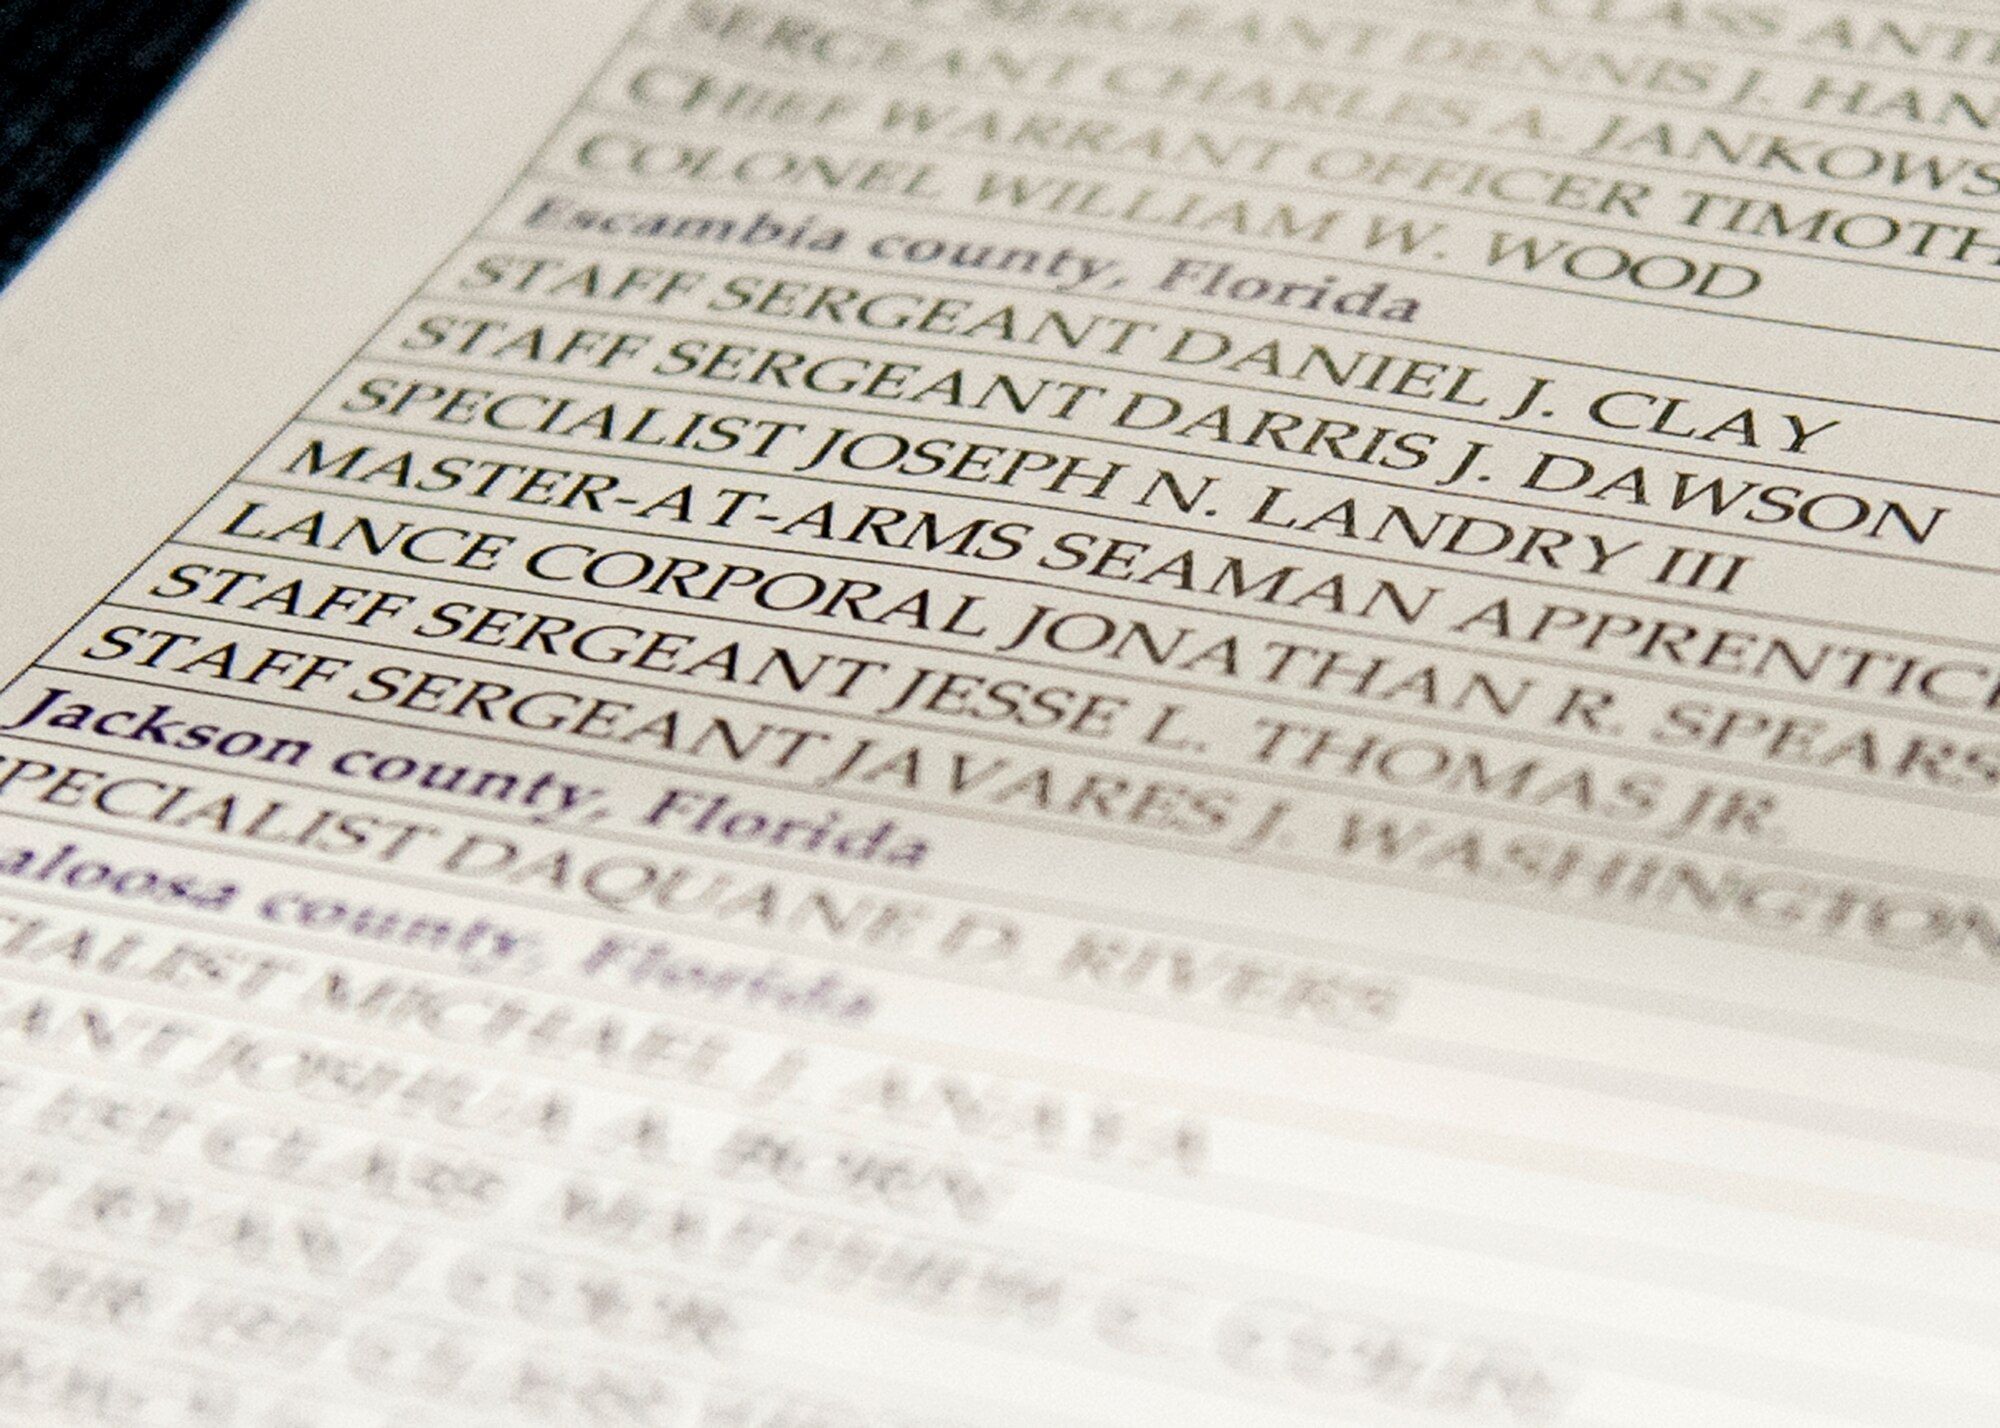 CLASS
SERGEANT DENNIS J. HAN
SERGEANT CHARLES A. JANKOWS
CHIEF WARRANT OFFICER TIMOTH
COLONEL WILLIAM W. WOOD
Escambia county, Florida
STAFF SERGEANT DANIEL J. CLAY
STAFF SERGEANT DARRIS J. DAWSON
SPECIALIST JOSEPH N. LANDRY III
MASTER-AT-ARMS SEAMAN APPRENTIC
LANCE CORPORAL JONATHAN R. SPEARS
STAFF SERGEANT JESSE L. THOMAS JR.
STAFF SERGEANT JAVARES J. WASHINGTON
Jackson county, Florida
PECIALIST DAQUANE D. RIVERS
aloosa county, Florida
CIALIST MICHAEL J. ANAYA
ANT JOSHUA A.
CLASS